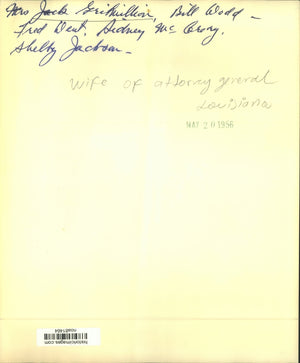 Mrs Jack Gremillion, Bill Dodd -
Fred Dent, Sidney Mc Crory,
Shelby Jackson -
wife of attorney general
Louisiana
MAY 20 1956
historicimages.com